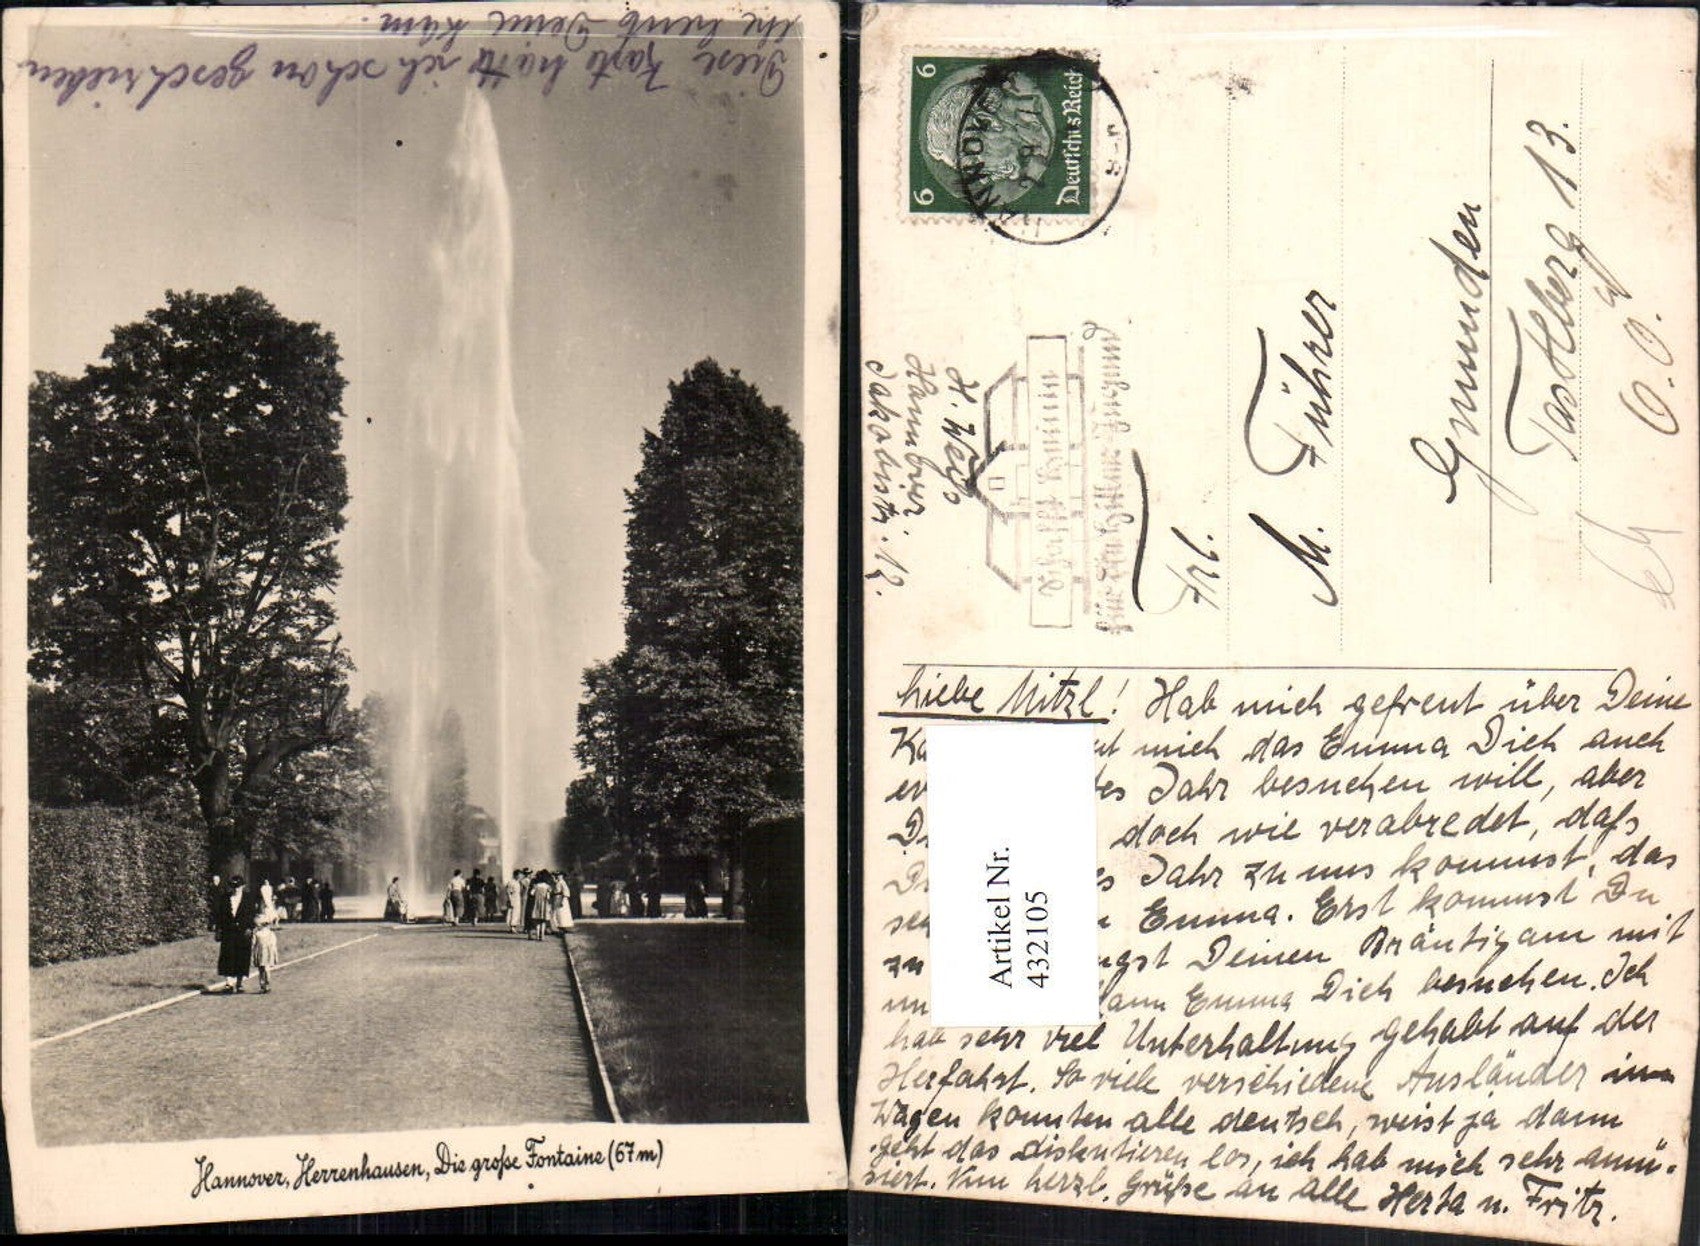 Diese Karte hatte ich schon geschrieben
ehe heute Deine kam.
Hannover, Herrenhausen, Die große Fontaine (67 m)
6 6
Deutsches Reich
HANNOVER
Schafft Heime
für die Hitler-Jugend
H. Weiß
Hannover.
Jakobistr. 12.
Frl.
M. Führer
Gmunden
Tastlberg 13.
O.Ö.
Liebe Mitzl! Hab mich gefreut über Deine
mich das Emma Dich auch
Jahr besuchen will, aber
doch wie verabredet, daß
Jahr zu uns kommst, das
Emma. Erst kommst Du
zu Deinen Bräutigam mit
Emma Dich besuchen. Ich
hab sehr viel Unterhaltung gehabt auf der
Herfahrt. So viele verschiedene Ausländer im
Wagen konnten alle deutsch, weist ja dann
geht das diskutieren los, ich hab mich sehr amü-
siert. Nun herzl. Grüße an alle Herta u. Fritz.
Artikel Nr.
432105